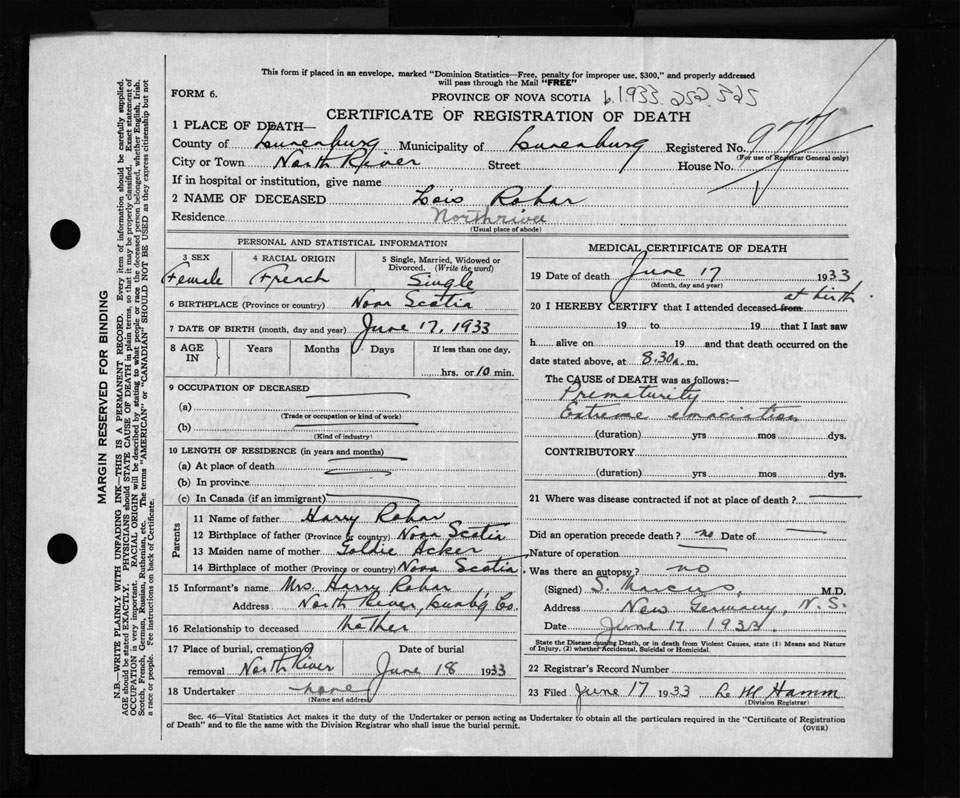 This form if placed in an envelope, marked "Dominion Statistics—Free, penalty for improper use, $300," and properly addressed
will pass through the Mail "FREE"
FORM 6.
PROVINCE OF NOVA SCOTIA b.1933.252.525
CERTIFICATE OF REGISTRATION OF DEATH
1 PLACE OF DEATH—
County of Lunenburg Municipality of Lunenburg Registered No.
(For use of Registrar General only)
City or Town North River Street House No.
If in hospital or institution, give name
2 NAME OF DECEASED Lois Rohar
Residence Northriver
(Usual place of abode)
PERSONAL AND STATISTICAL INFORMATION
3 SEX 4 RACIAL ORIGIN 5 Single, Married, Widowed or
Divorced. (Write the word)
Female French Single
6 BIRTHPLACE (Province or country) Nova Scotia
7 DATE OF BIRTH (month, day and year) June 17, 1933
8 AGE IN Years Months Days If less than one day,
hrs. or 10 min.
9 OCCUPATION OF DECEASED
(a)
(Trade or occupation or kind of work)
(b)
(Kind of industry)
10 LENGTH OF RESIDENCE (in years and months)
(a) At place of death
(b) In province
(c) In Canada (if an immigrant)
Parents
11 Name of father Harry Rohar
12 Birthplace of father (Province or country) Nova Scotia
13 Maiden name of mother Goldie Acker
14 Birthplace of mother (Province or country) Nova Scotia
15 Informant's name Mrs. Harry Rohar
Address North River, Lunbg Co.
16 Relationship to deceased Mother
17 Place of burial, cremation or removal North River Date of burial June 18 1933
18 Undertaker none
(Name and address)
MEDICAL CERTIFICATE OF DEATH
19 Date of death June 17 1933
(Month, day and year)
at birth
20 I HEREBY CERTIFY that I attended deceased from
19 to 19 that I last saw
h alive on 19 and that death occurred on the
date stated above, at 8.30 a.m.
The CAUSE of DEATH was as follows:—
Prematurity
Extreme emaciation
(duration) yrs mos dys.
CONTRIBUTORY
(duration) yrs mos dys.
21 Where was disease contracted if not at place of death?
Did an operation precede death? no Date of
Nature of operation
Was there an autopsy? no
(Signed) S. Marcus, M.D.
Address New Germany, N.S.
Date June 17 1933
State the Disease causing Death, or in death from Violent Causes, state (1) Means and Nature
of Injury, (2) whether Accidental, Suicidal or Homicidal.
22 Registrar's Record Number
23 Filed June 17 1933 L. M. Hamm
(Division Registrar)
Sec. 46—Vital Statistics Act makes it the duty of the Undertaker or person acting as Undertaker to obtain all the particulars required in the "Certificate of Registration
of Death" and to file the same with the Division Registrar who shall issue the burial permit.
(OVER)
MARGIN RESERVED FOR BINDING
N.B.—WRITE PLAINLY WITH UNFADING INK—THIS IS A PERMANENT RECORD. Every item of information should be carefully supplied.
AGE should be stated EXACTLY. PHYSICIANS should STATE CAUSE OF DEATH in plain terms, so that it may be properly classified. Exact statement of
OCCUPATION is very important. RACIAL ORIGIN will be described by stating to what people or race the deceased person belonged, whether English, Irish,
Scotch, French, German, Russian, Ruthenian, etc. The terms "AMERICAN" or "CANADIAN" SHOULD NOT BE USED as they express citizenship but not
a race or people. See instructions on back of Certificate.